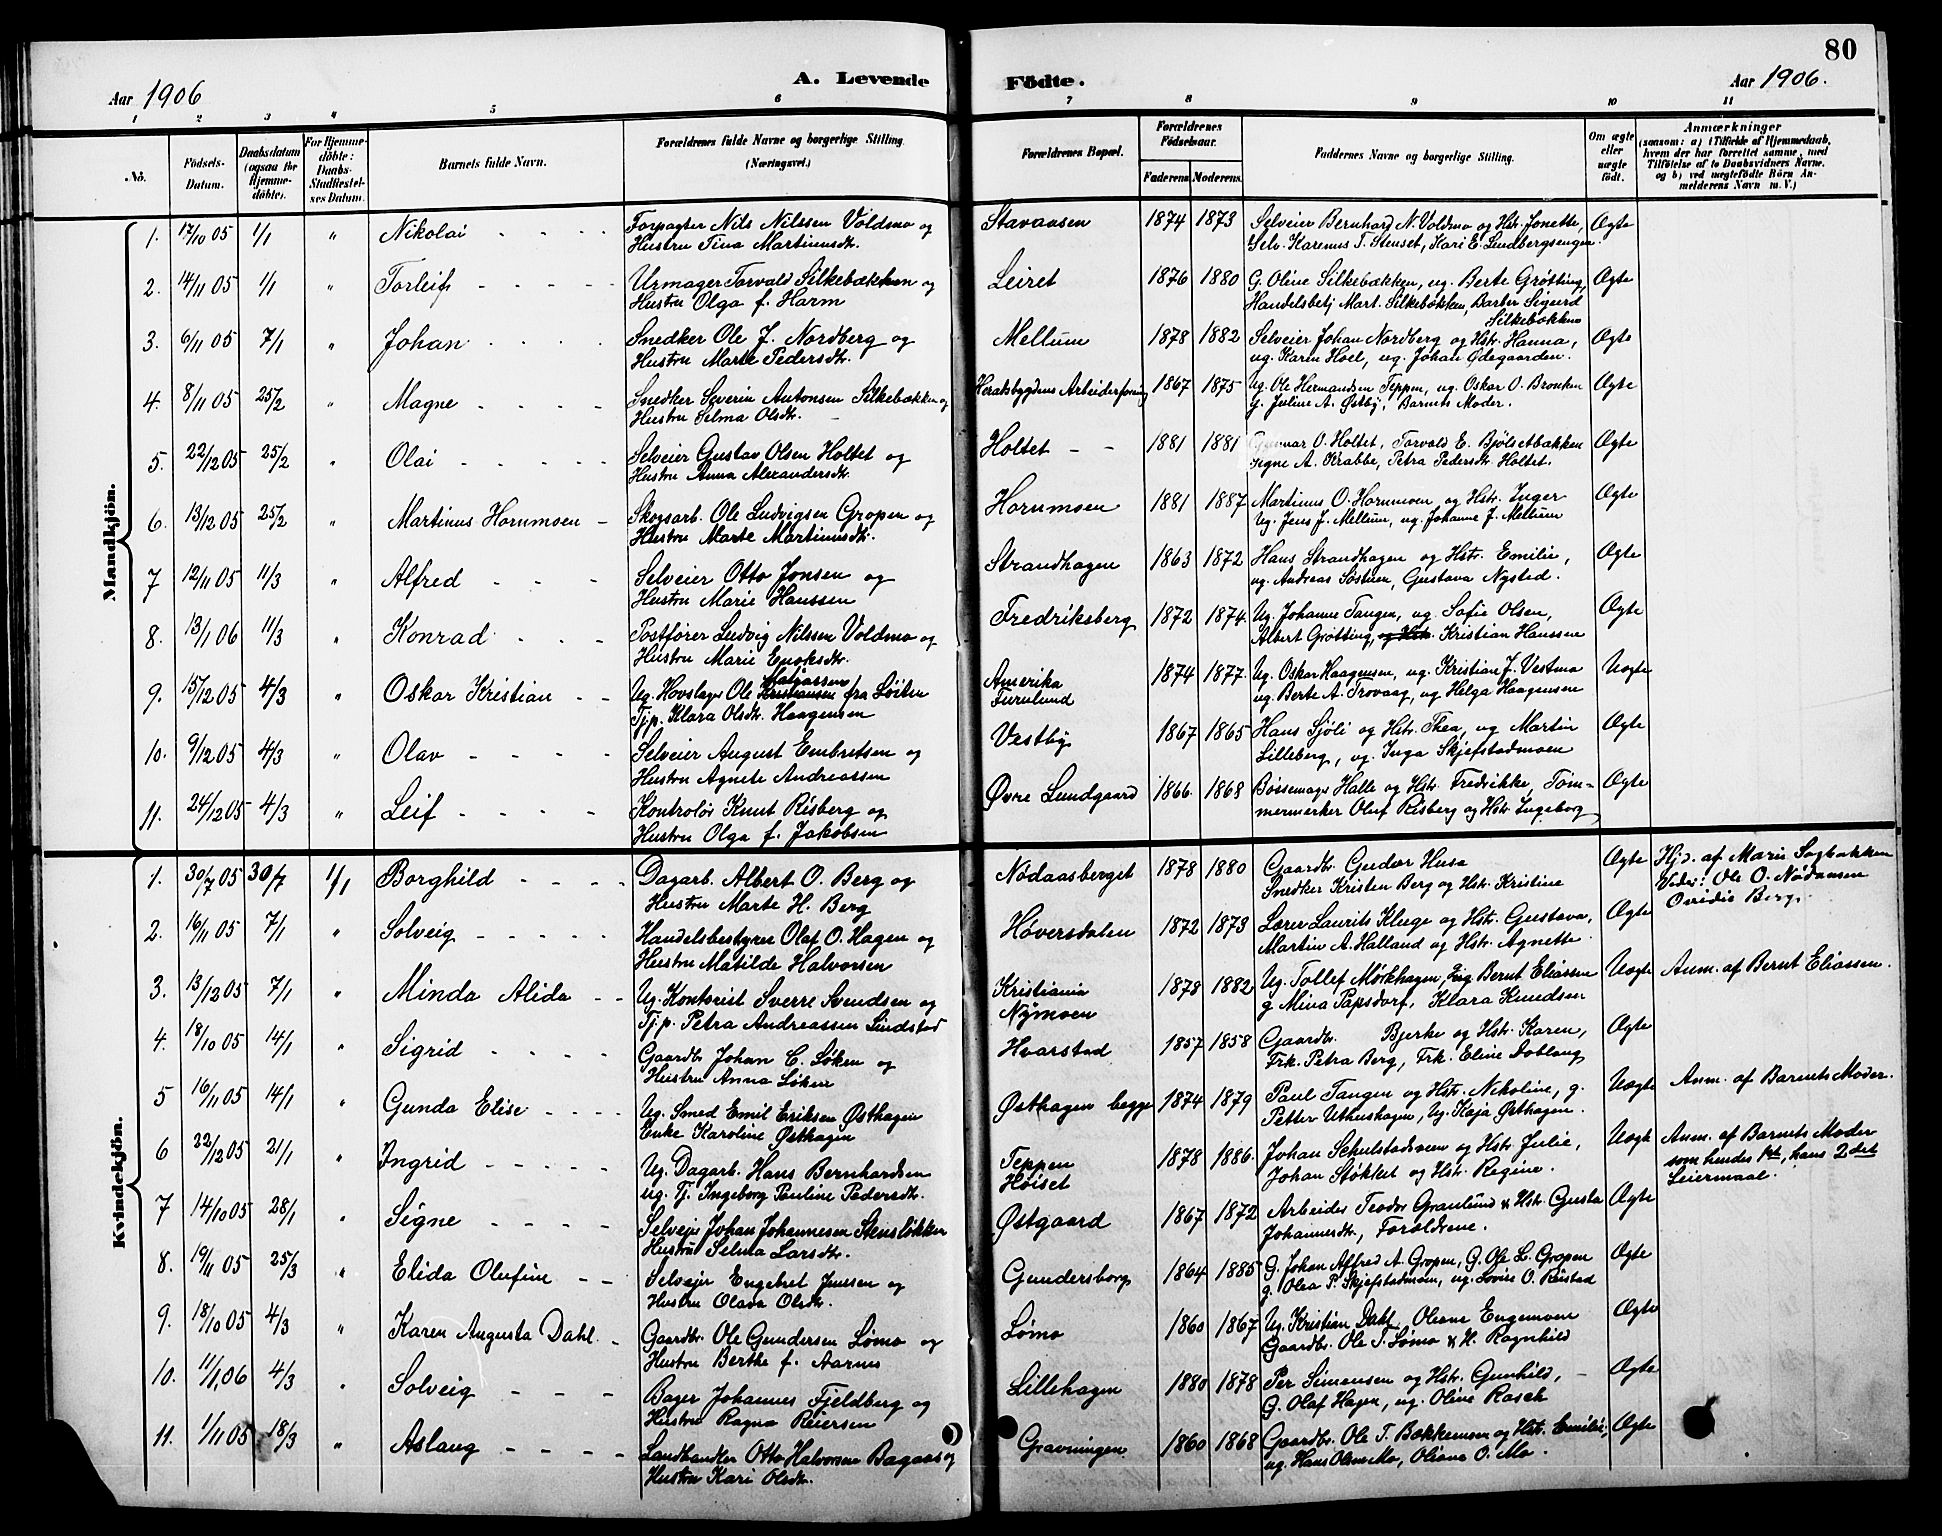 80
Aar 1906
A. Levende Födte.
Aar 1906.
1 2 3 4 5 6 7 8 9 10 11
No.
Födsels-Datum.
Daabsdatum (ogsaa for Hjemmedöbte).
For Hjemmedöbte: Daabs-Stadfestelses Datum.
Barnets fulde Navn.
Forældrenes fulde Navne og borgerlige Stilling. (Næringsvei.)
Forældrenes Bopæl.
Forældrenes Födselsaar.
Faderens Moderens.
Faddernes Navne og borgerlige Stilling.
Om ægte eller uægte födt.
Anmærkninger
(saasom: a) i Tilfælde af Hjemmedaab, hvem der har forrettet samme, med Tilföielse af to Daabsvidners Navne, og b) ved uægtefödte Börn Anmelderens Navn m. V.)
Mandkjön.
1. 17/10 05 1/1 " Nikolai - - - - Forpagter Nils Nilssen Voldmo og Stavaasen 1874 1873 Selveier Bernhard N. Voldmo og Hstr. Jonette, Ægte
Hustru Tina Martinusdtr. Selv. Karenus T. Stenset, Kari E. Lundbergsengen.
2. 14/11 05 1/1 " Torleif - - - - - Urmager Torvald Silkebækken og Leiret 1876 1880 G. Oline Silkebækken, ug. Berte Grøtting, Ægte
Hustru Olga f. Harm Handelsbetj Mart. Silkebækken, Barber Sigurd
Silkebækken
3. 6/11 05 7/1 " Johan - - - - Snedker Ole J. Nordberg og Mellum 1878 1882 Selveier Johan Nordberg og Hstr. Hanna, Ægte
Hustru Marte Pedersdtr. ug. Karin Hoel, ug. Johan Ødegaarden.
4. 8/11 05 25/2 " Magne - - - - Snedker Severin Antonsen Silkebækken og Heradsbygdens Arbeiderforening 1867 1875 Ug. Ole Hermandsen Teppen, ug. Oskar O. Bronken Ægte
Hustru Selma Olsdtr. g. Juline A. Østby, Barnets Moder.
5. 22/12 05 25/2 " Olai - - - - - Selveier Gustav Olsen Holtet og Holtet - - 1881 1881 Gunnar O. Holtet, Torvald E. Bjølsetbakken Ægte
Hustru Anna Alexandersdtr. Signe A. Krabbe, Petra Pedersdtr. Holtet.
6. 13/12 05 25/2 " Martinus Hornmoen - Skogsarb. Ole Ludvigsen Gropen og Hornmoen 1881 1887 Martinus O. Hornmoen og Hstr. Inger Ægte
Hustru Marte Martinusdtr. Ug. Jens J. Mellum, ug. Johanne J. Mellum
7 12/11 05 11/3 " Alfred - - - Selveier Otto Jonsen og Strandhagen 1863 1872 Hans Strandhagen og Hstr. Emilie, Ægte
Hustru Marie Hanssen ug. Andreas Søstuen, Gustava Nysted.
8. 13/1 06 11/3 " Konrad - - - Postfører Ludvig Nilssen Voldmo og Fredriksberg 1872 1874. Ug. Johanne Tangen, ug. Sofie Olsen, Ægte
Hustru Marie Enoksdtr. Albert Grøtting, og Hstr. Kristian Hanssen
9. 15/12 05 4/3 " Oskar Kristian - - Ug. Hovslager Ole Kristiansen fra Løiten Amerika 1874 1877. Ug. Oskar Haagensen, ug. Kristian J. Vestmo Uægte
Tjp. Klara Olsdtr. Haagensen Furulund ug. Berte A. Trovaag, ug Helga Haagensen
10. 9/12 05 4/3 " Olav - - - - Selveier August Embretsen og Vestby 1867 1865 Hans Sjøli og Hstr. Thea, ug Martin Ægte
Hustru Agnete Andreassen Lilleberg, ug. Inga Skjefstadmoen
11. 24/12 05 4/3 " Leif - - - - Kontrolør Knut Risberg og Øvre Lundgaard 1866. 1868 Børsemager Halle og Hstr. Fredrikke, Tøm- Ægte
Hustru Olga f. Jakobsen mermerker Oluf Risberg og Hstr Ingeborg
Kvindekjön.
1. 30/7 05 30/7 1/1 Borghild - - - - Dagarb. Albert O. Berg og Nødaasberget 1878 1880 Gaardbr. Gudar Husa Ægte Hjd. af Marie Sagbakken
Hustru Marte H. Berg Snedker Kristen Berg og Hstr. Kristine Vidner: Ole O. Nødaasen
Ovidie Berg.
2. 16/11 05 7/1 " Solveig - - - - - Handelsbestyrer Olaf O. Hagen og Høversdalen 1872 1873 Lærer Laurits Kluge og Hstr. Gustava, Ægte
Hustru Matilde Halvorsen Martin A. Halland og Hstr. Agnette
3. 13/12 05 7/1 " Minda Alida - - Ug. Kontorist Sverre Svendsen og Kristiania 1878 1882 Ug. Tollef Mørkhagen, Ing. Bernt Eliassen Uægte Anm. af Bernt Eliassen.
Tjp. Petra Andreassen Lindstad Nymoen g Mina Papsdorf, Klara Knudsen
4. 18/10 05 14/1 " Sigrid - - - - Gaardbr Johan C. Løken og Hvarstad 1857 1858 Gaardbr. Bjerke og Hstr. Karen, Ægte
Hustru Anna Løken Frk. Petra Berg, Frk. Eline Doblaug
5 16/11 05 14/1 " Gunda Elise - - - - Ug. Smed Emil Eriksen Østhagen Østhagen begge 1874 1879 Paul Tangen og Hstr. Nikoline, g. Uægte Anm. af Barnets Moder.
Enke Karoline Østhagen Petter Uthushagen, Ug. Kaja Østhagen.
6 22/12 05 21/1 " Ingrid - - - - - Ug. Dagarb. Hans Bernhardsen Teppen 1878 1886. Johan Schulstadsveen og Hstr. Julie, Uægte Anm. af Barnets Moder
ug. Tj. Ingeborg Pauline Pedersdtr. Høiset Johan Støkket og Hstr. Regine. som hendes 1ste, hans 2det
Leiermaal.
7 14/10 05 28/1 " Signe - - - - Selveier Johan Johannesen Stensløkken Østgaard 1867 1872 Arbeider Teodor Granlund & Hstr Gusta Ægte
Hustru Selma Larsdtr. Johannesdtr, Forældrene.
8. 19/11 05 25/3 " Elida Olufine - - Selveier Engebret Jenssen og Gundersborg 1864 1885 G. Johan Alfred A Gropen, G. Ole L. Gropen Ægte
Hustru Olava Olsdtr. g. Olea P. Skjefstadmoen, ug. Lovise O. Rustad
9. 18/10 05 4/3 " Karen Augusta Dahl. - Gaardbr. Ole Gundersen Lømo og Lømo 1860 1867 Ug. Kristian Dahl, Oleane Engemoen Ægte
Hustru Berthe f. Aarnes Gaardbr. Ole T. Lømo & H. Ragnhild
10. 11/1 06 4/3 " Solveig - - - Bager Johannes Fjeldberg og Lillehagen 1880 1878 Per Simensen og Hstr. Gunhild, - Ægte
Hustru Ragna Reiersen G. Olaf Hagen, ug. Oline Rasch
11. 1/11 05 18/3 " Aslaug - - - - Landhandler Otto Halvorsen Bagaas og Gravningen 1860 1868 Gaardbr. Ole T. Bækkemoen og Hstr. Emilie, Ægte
Hustru Kari Olsdtr. ug. Hans Olsen Mo, Oliane O. Mo.